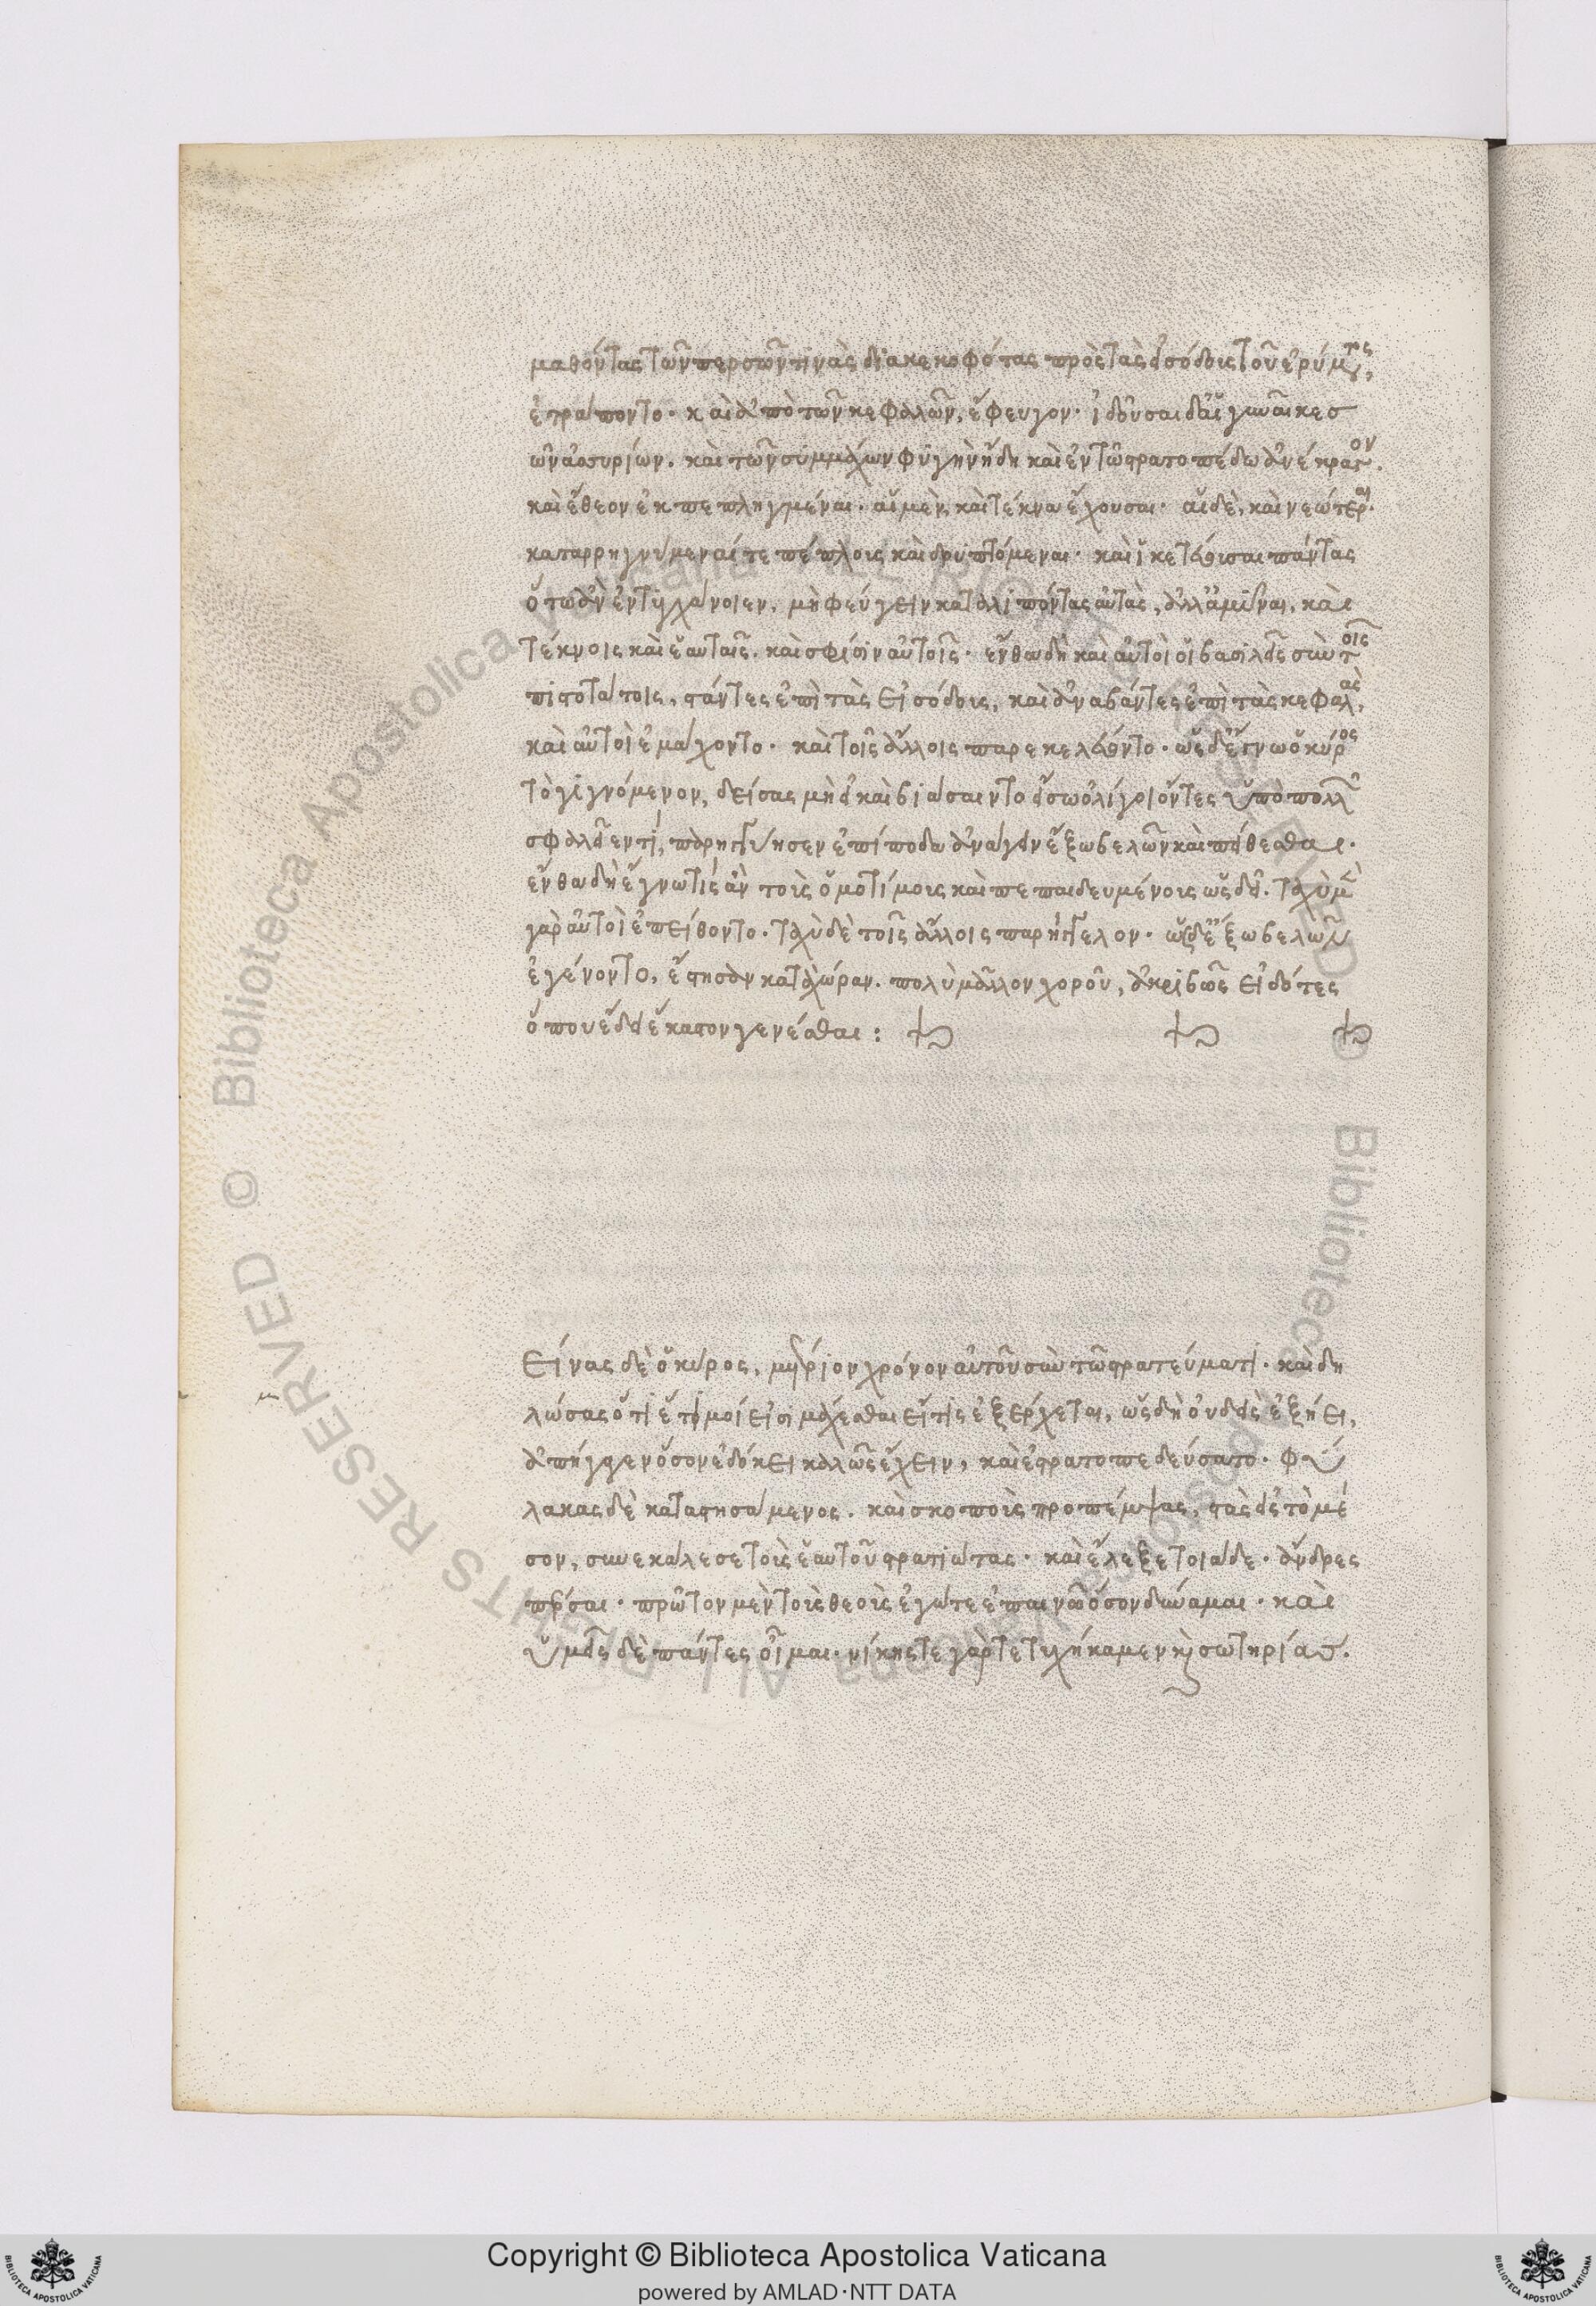 μαθόντας τῶν περσῶν τινὰς διακεκοφότας πρὸς τὰς εἰσόδους τοῦ ἐρύματος,
ἐτράποντο· καὶ ἀπὸ τῶν κεφαλῶν, ἔφευγον· ἰδοῦσαι δ' αἱ γυναῖκες
ῶν ἀσσυρίων. καὶ τῶν συμμάχων φυγὴν ἤδη καὶ ἐν τῷ στρατοπέδῳ ἀνέκραγον.
καὶ ἔθεον ἐκπεπληγμέναι. αἱ μὲν, καὶ τέκνα ἔχουσαι· αἱ δὲ, καὶ νεώτεραι.
καταρρηγνύμεναί τε πέπλους καὶ δρυπτόμεναι· καὶ ἱκετεύουσαι πάντας
ὅτῳ ἂν ἐντυγχάνοιεν, μὴ φεύγειν καταλιπόντας αὐτὰς, ἀλλ' ἀμῦναι, καὶ
τέκνοις καὶ ἑαυταῖς. καὶ σφίσιν αὐτοῖς· ἔνθα δὴ καὶ αὐτοὶ οἱ βασιλεῖς σὺν τοῖς
πιστοτάτοις, στάντες ἐπὶ τὰς εἰσόδους, καὶ ἀναβάντες ἐπὶ τὰς κεφαλὰς,
καὶ αὐτοὶ ἐμάχοντο· καὶ τοῖς ἄλλοις παρεκελεύοντο· ὡς δ' ἔγνω ὁ κύρος
τὸ γιγνόμενον, δείσας μὴ εἰ καὶ βιάσαιντο εἴσω ὀλίγοι ὄντες ὑπὸ πολλῶν
σφαλεῖέν τι, παρηγγύησεν ἐπὶ πόδα ἀνάγειν ἔξω βελῶν καὶ πείθεσθαι.
ἔνθα δὴ ἔγνω τις ἂν τοὺς ὁμοτίμους καὶ πεπαιδευμένους ὡς δεῖ. ταχὺ μὲν
γὰρ αὐτοὶ ἐπείθοντο. ταχὺ δὲ τοῖς ἄλλοις παρήγγελον· ὡς δ' ἔξω βελῶν
ἐγένοντο, ἔστησαν κατὰ χώραν. πολὺ μᾶλλον χοροῦ, ἀκριβῶς εἰδότες
ὅπου ἔδει ἕκαστον γενέσθαι :
Είνας δὲ ὁ κύρος, μέτριον χρόνον αὐτοῦ σὺν τῷ στρατεύματι· καὶ δη
λώσας ὅτι ἕτοιμοί εἰσι μάχεσθαι εἴ τις ἐξέρχεται, ὡς δὴ οὐδεὶς ἐξῄει,
ἀπήγαγεν ὅσον ἐδόκει καλῶς ἔχειν, καὶ ἐστρατοπεδεύσατο· φυ
λακὰς δὲ καταστησάμενος. καὶ σκοποὺς προπέμψας, στὰς εἰς τὸ μέ
σον, συνεκάλεσε τοὺς ἑαυτοῦ στρατιώτας· καὶ ἔλεξε τοιάδε· ἄνδρες
πέρσαι· πρῶτον μὲν τοὺς θεοὺς ἐγώ τε ἐπαινῶ ὅσον δύναμαι· καὶ
ὑμεῖς δὲ πάντες οἶμαι· νίκης τε γὰρ τετυχήκαμεν καὶ σωτηρίας.